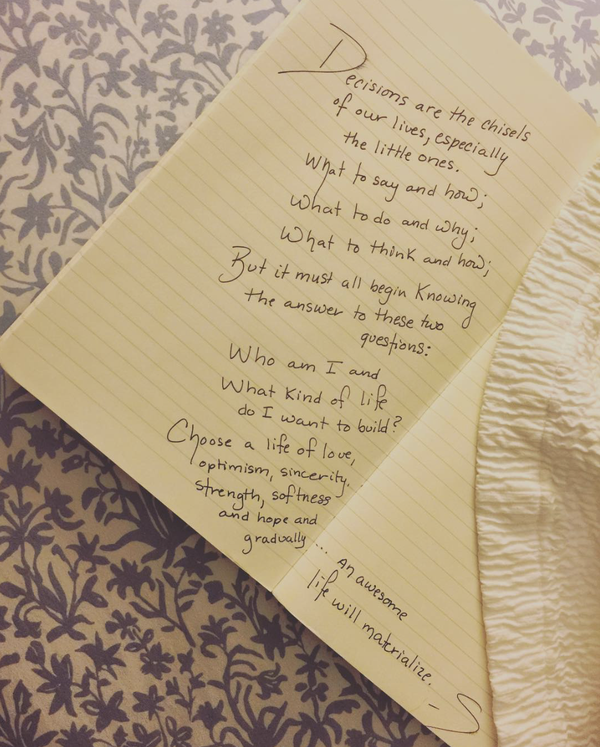 Decisions are the chisels
of our lives, especially
the little ones.
What to say and how;
What to do and why;
What to think and how;
But it must all begin Knowing
the answer to these two
questions:
Who am I and
What Kind of life
do I want to build?
Choose a life of love,
optimism, sincerity,
strength, softness
and hope and
gradually ....
An awesome
life will materialize.
- S